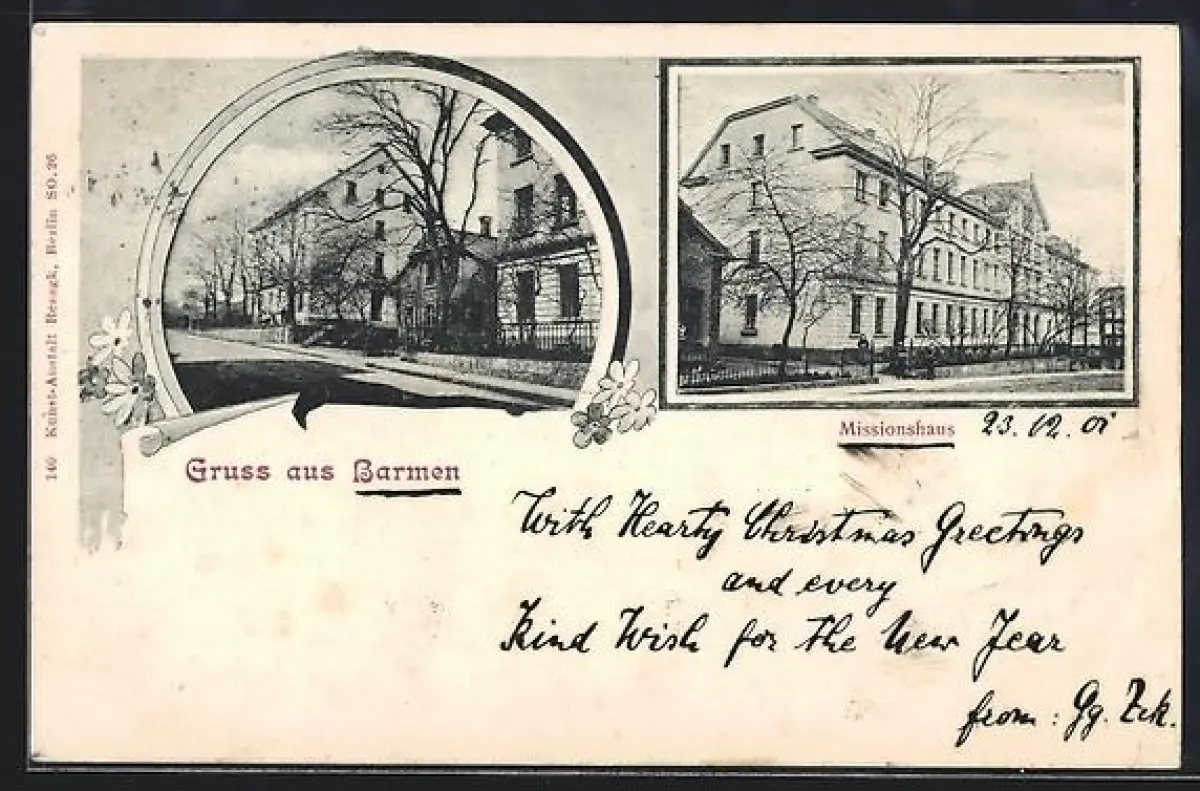 149 Kunst-Anstalt Rezagk, Berlin SO. 26
Missionshaus 23.12.01
Gruss aus Barmen
With Hearty Christmas Greetings
and every
Kind Wish for the New Year
from: Gg.